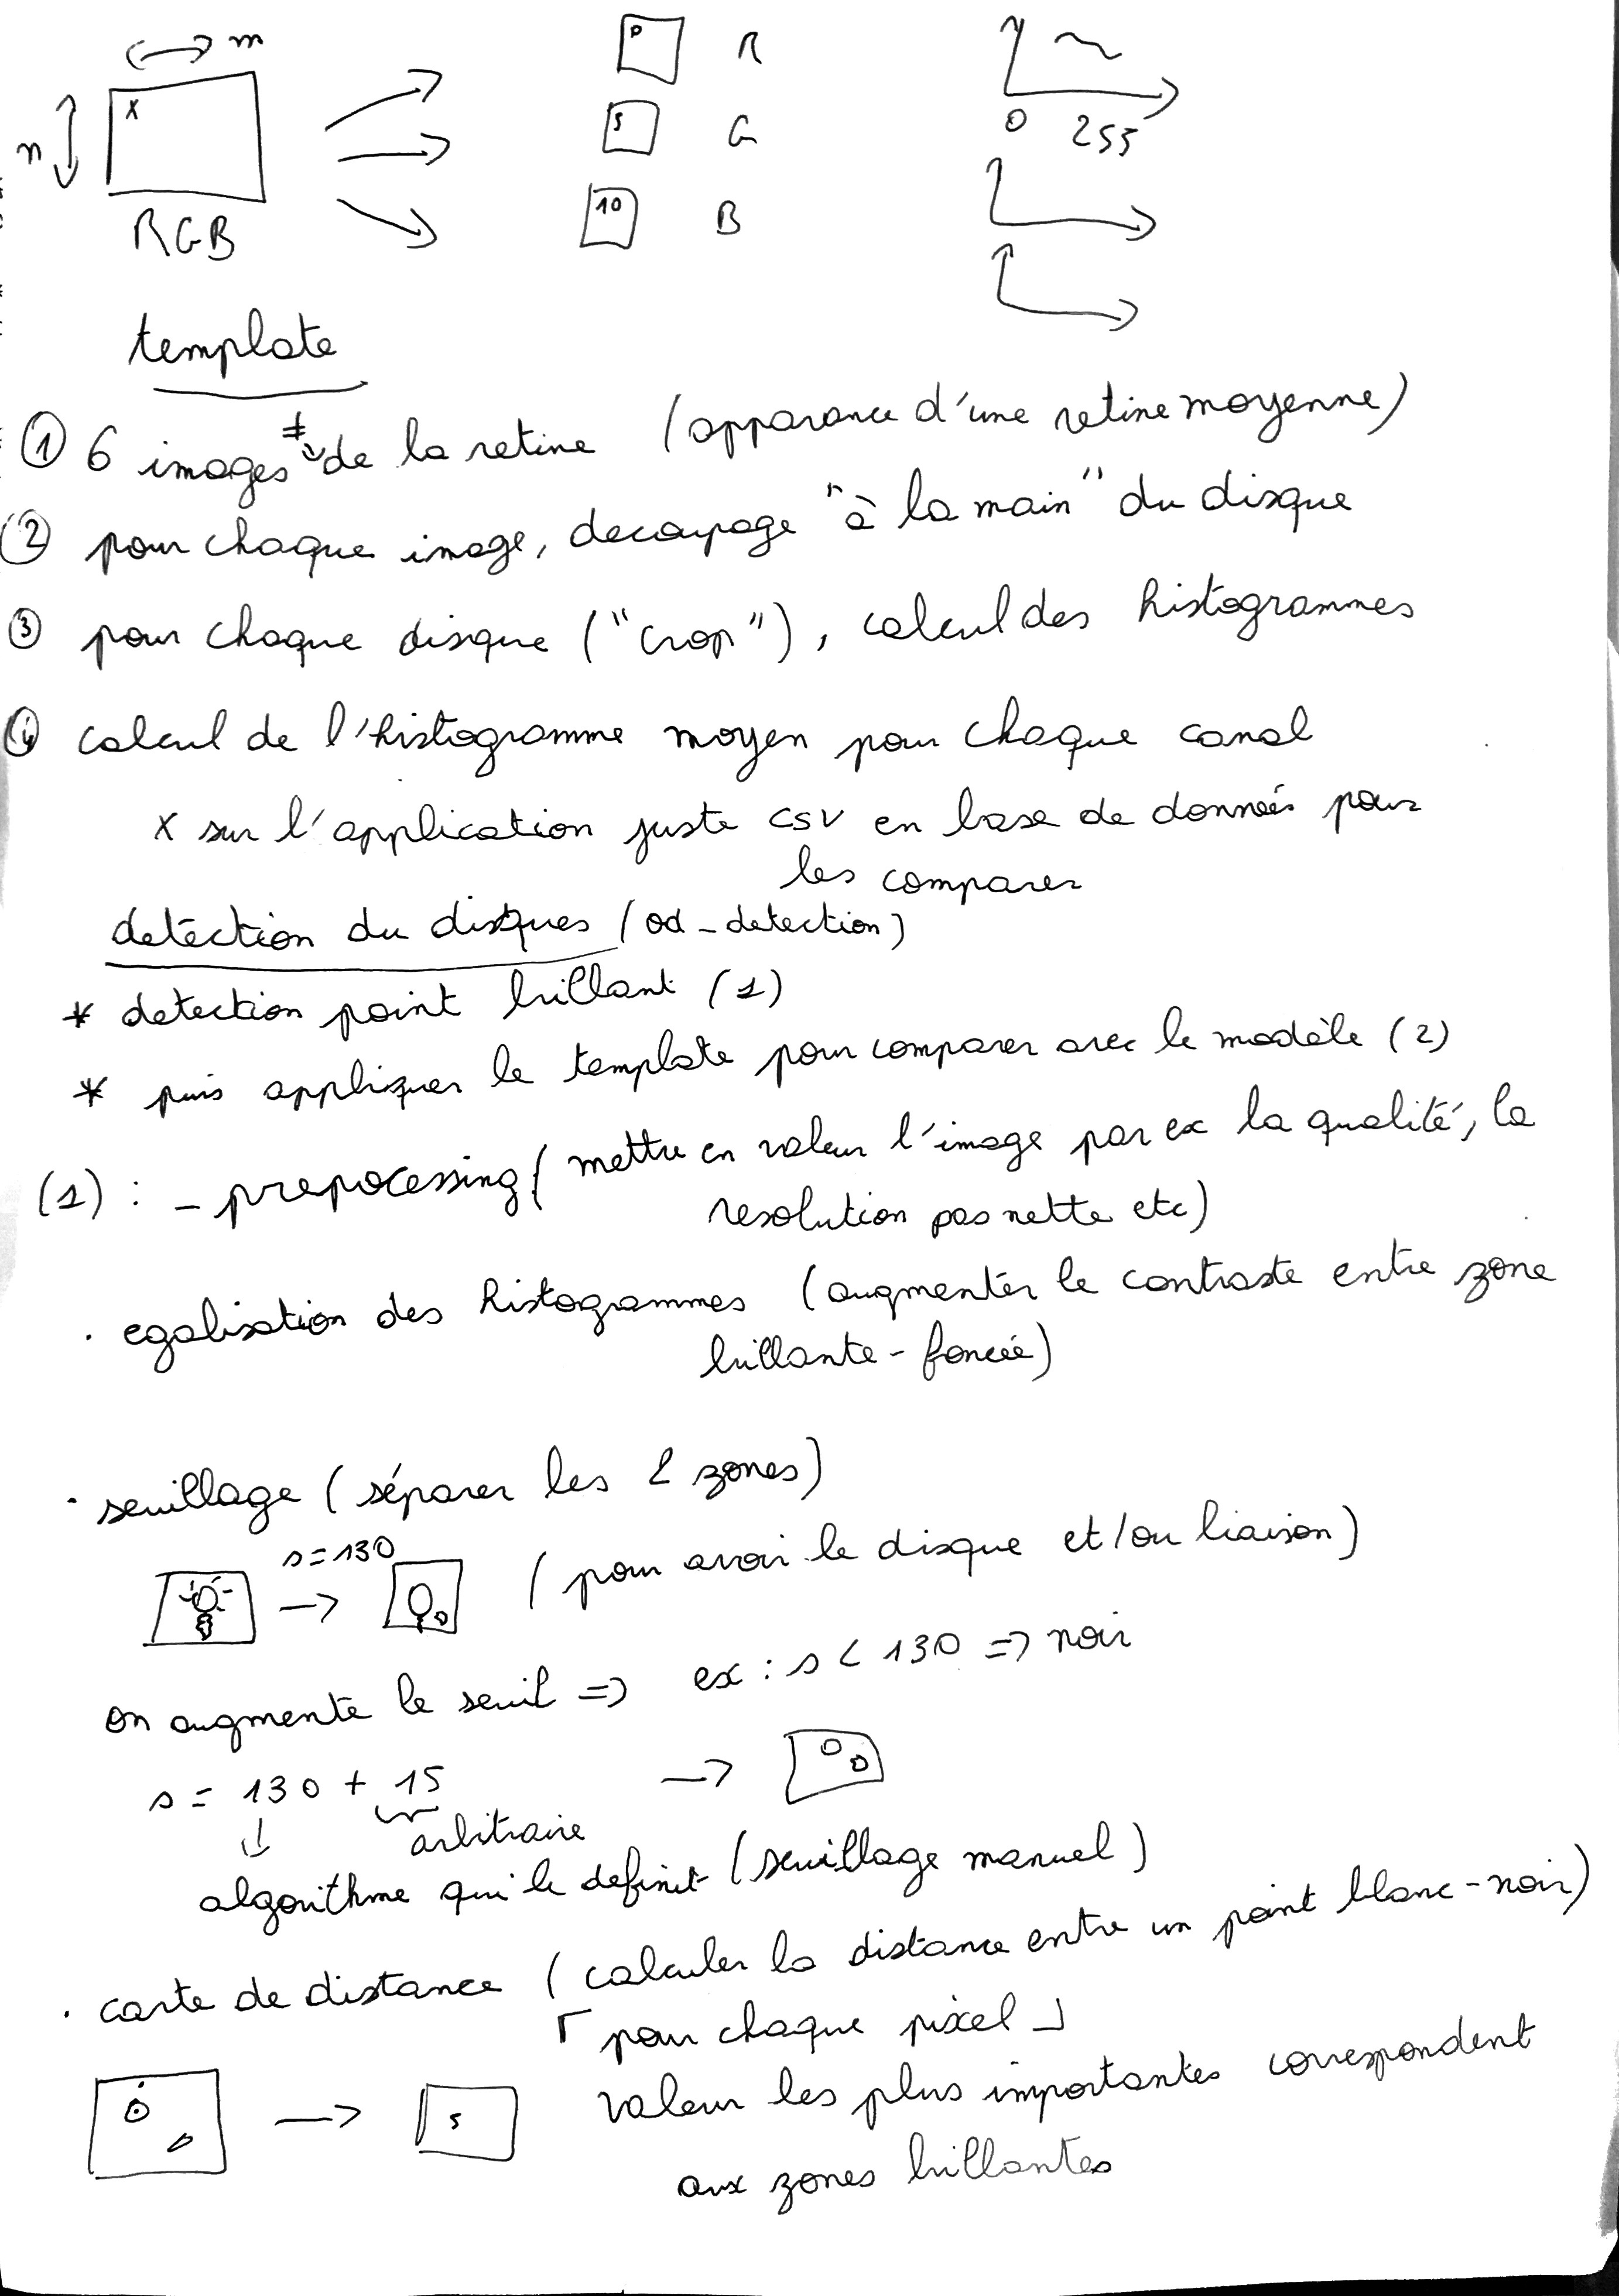 m
n
X
RGB
R
5
G
10
B
0 255
template
① 6 images ≠ de la retine (apparance d'une retine moyenne)
② pour chaque image, decoupage "à la main" du disque
③ pour chaque disque ("crop"), calcul des histogrammes
④ calcul de l'histogramme moyen pour chaque canal
x sur l'application juste csv en base de données pour
les comparer
detection du disques (od_detection)
* detection point brillant (1)
* puis appliquer le template pour comparer avec le modèle (2)
(1) : - prepocessing (mettre en valeur l'image par ex la qualité, la
resolution pas nette etc)
. egalisation des histogrammes (augmenter le contraste entre zone
brillante - foncée)
. seuillage (séparer les 2 zones)
s=130
(pour avoir le disque et/ou liaison)
on augmente le seuil => ex : s < 130 => noir
s = 130 + 15 ->
arbitraire
algorithme qui le definit (seuillage manuel)
. carte de distance (calculer la distance entre un point blanc-noir)
⌈ pour chaque pixel ⌋
-> 5 valeur les plus importantes correspondent
aux zones brillantes